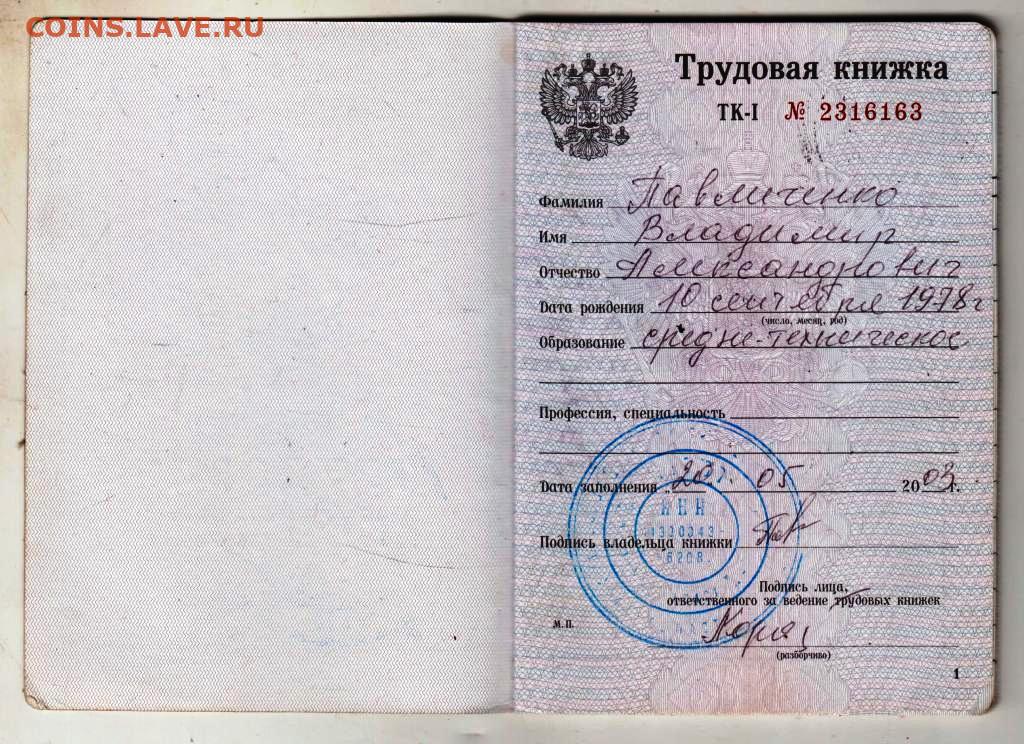 COINS.LAVE.RU
Трудовая книжка
ТК-I № 2316163
Фамилия Павличенко
Имя Владимир
Отчество Александрович
Дата рождения 10 сентября 1978г
(число, месяц, год)
Образование средне-техническое
Профессия, специальность
Дата заполнения „20" 05 2003г.
ИНН
Подпись владельца книжки
6208
Подпись лица,
ответственного за ведение трудовых книжек
М.П.
(разборчиво)
1